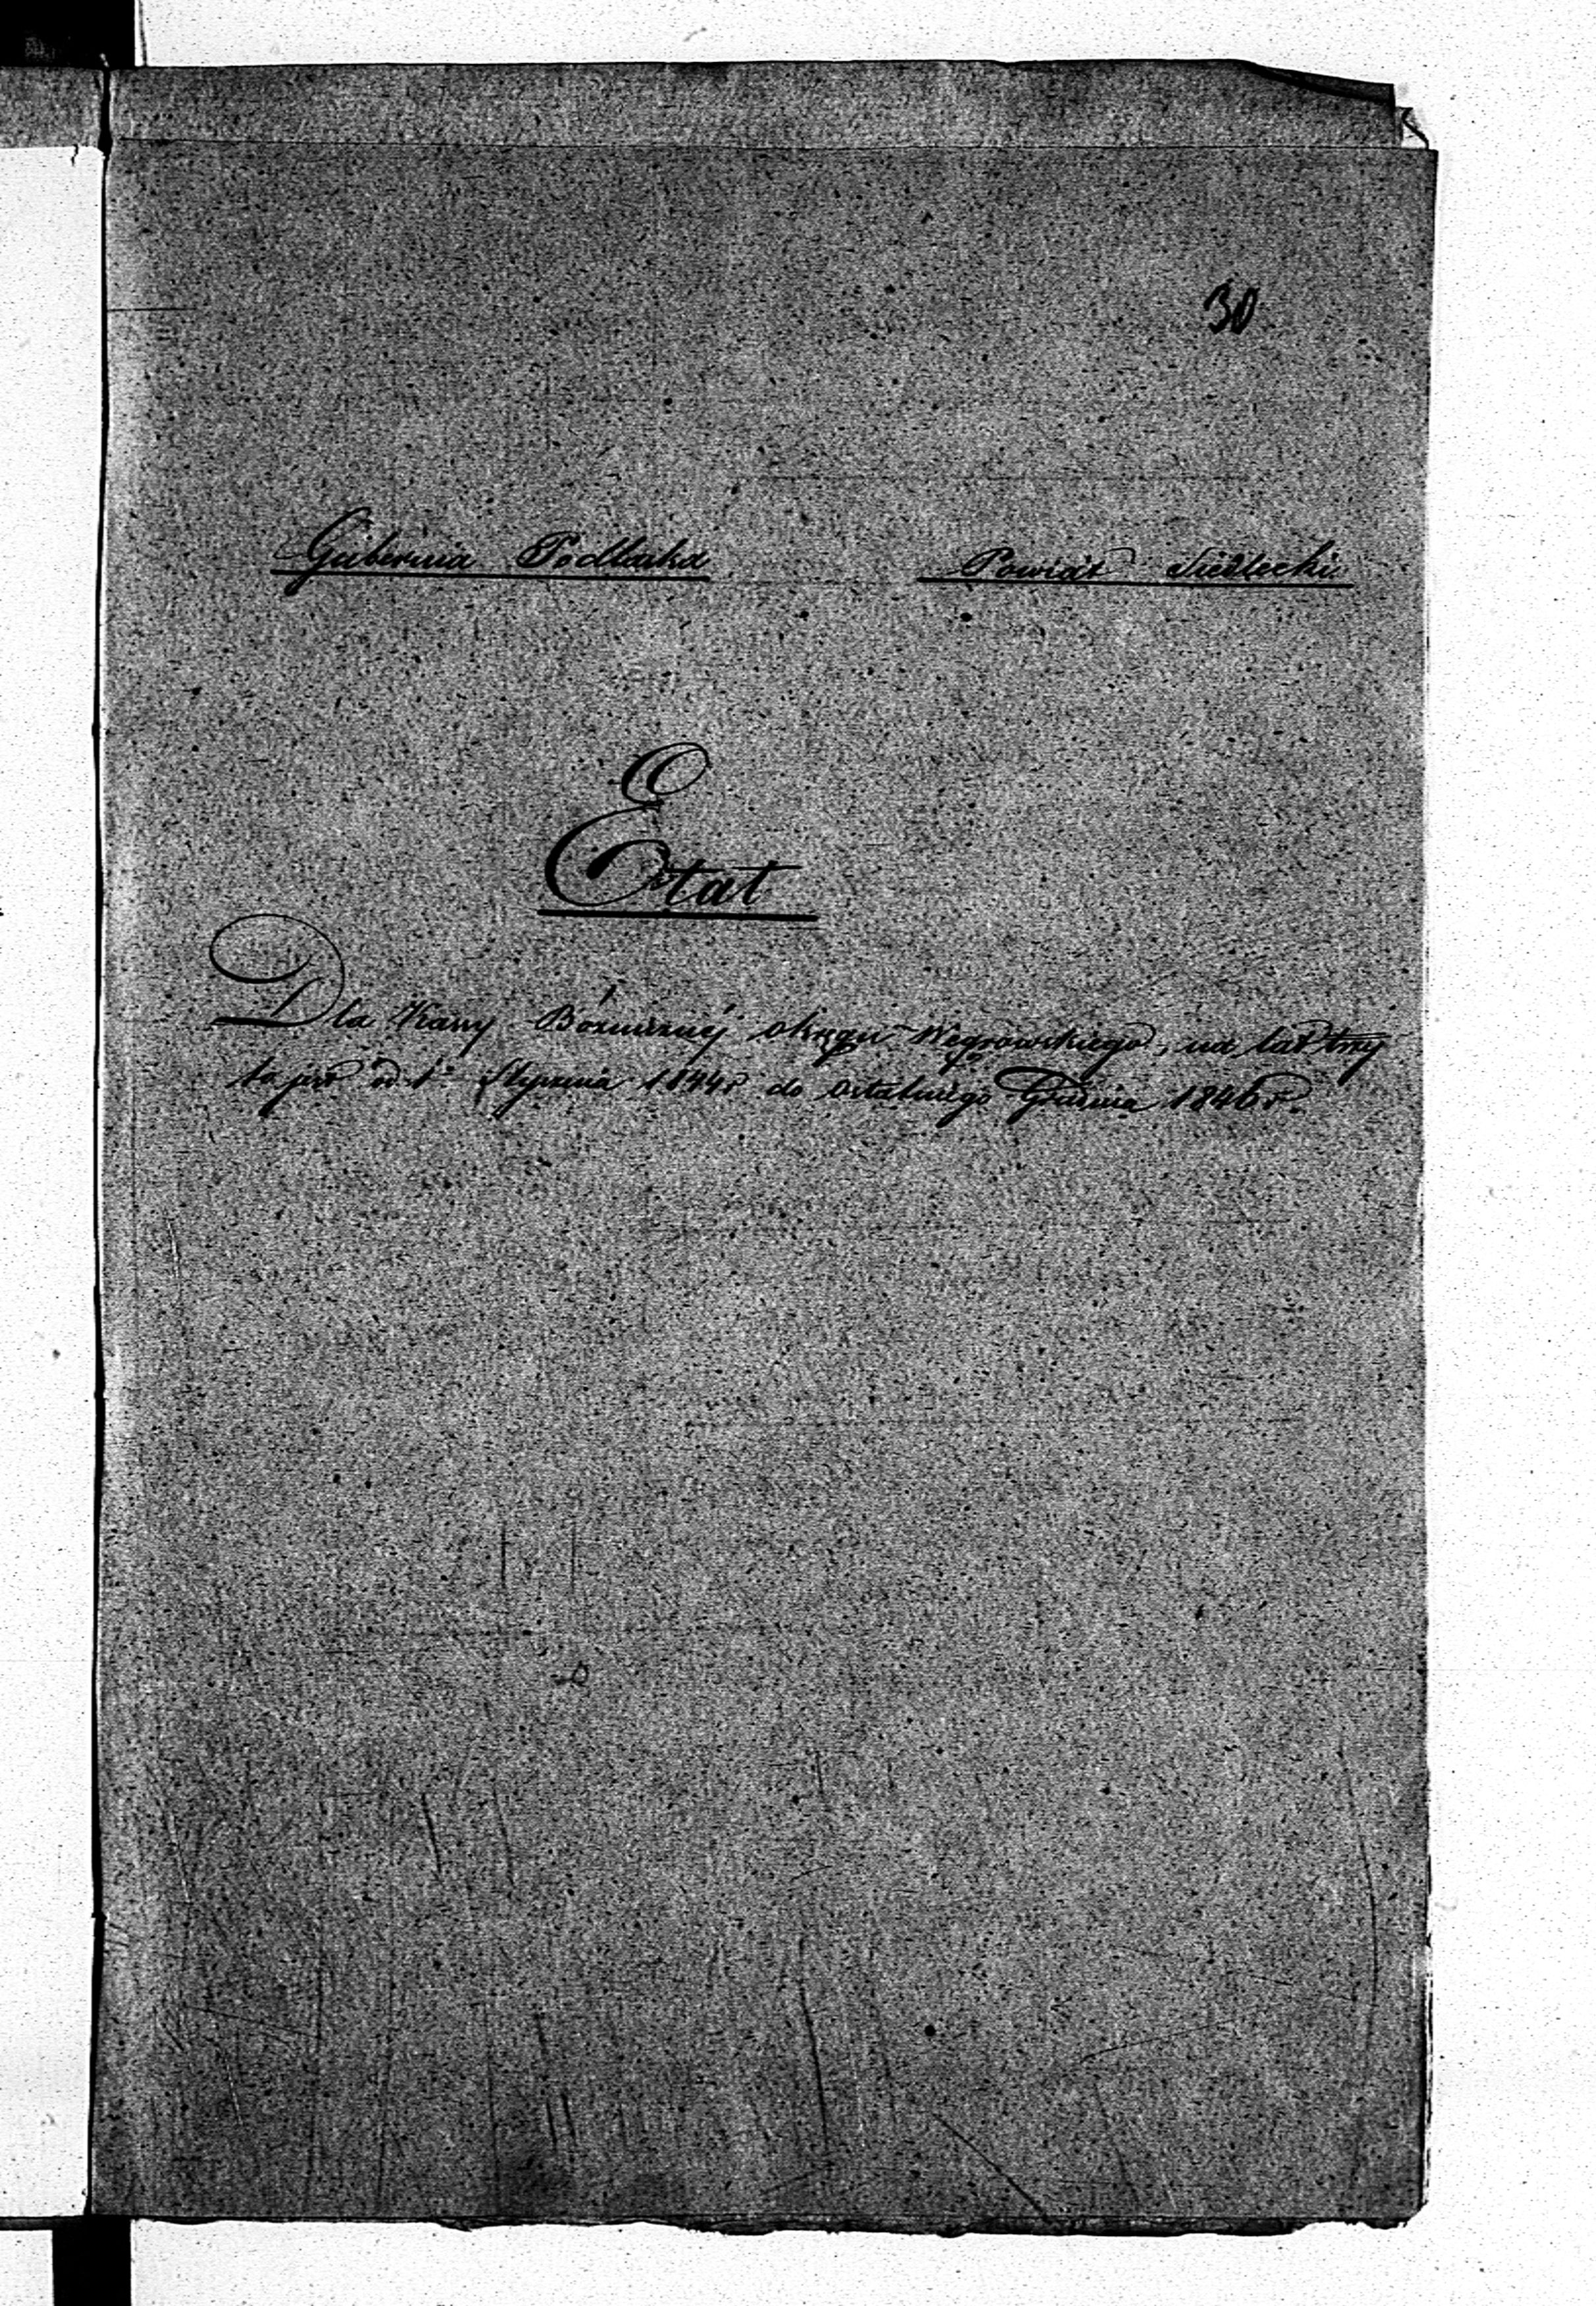 30
Gubernia Podlaska Powiat Siedlecki
Etat
Dla Kassy Bóżnicznéj okręgu Węgrowskiego, na lat trzy
to jest od 1º Stycznia 1844r do ostatniego Grudnia 1846r.